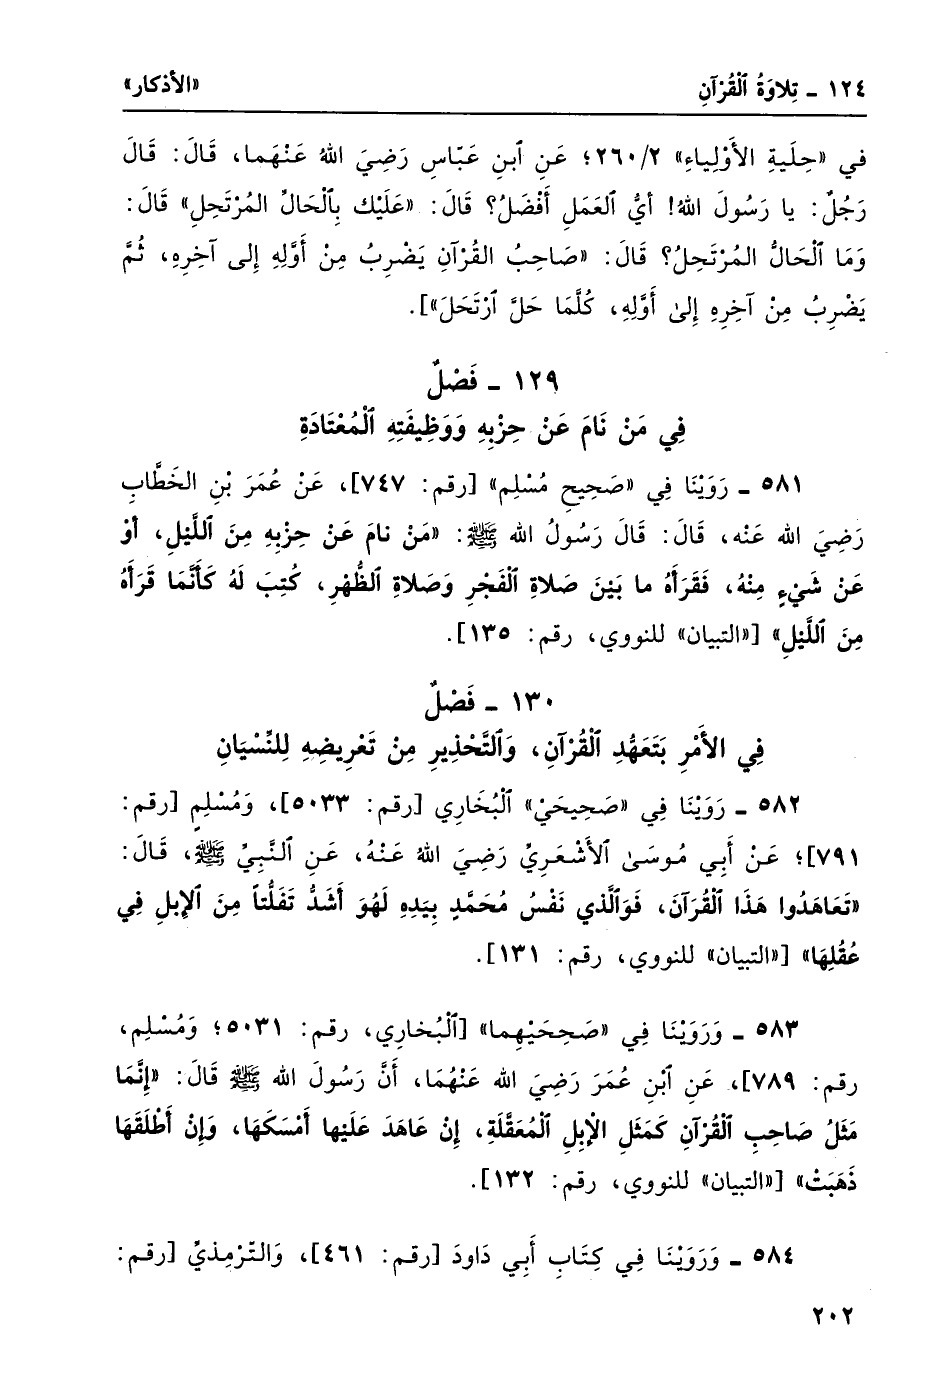 ١٢٤ ـ تِلاوَةُ ٱلْقُرْآنِ «الأذكار»
في «حِلَيةِ الأَوْلِياءِ» ٢/ ٢٦٠؛ عَنِ ٱبنِ عَبّاسِ رَضِيَ اللهُ عَنْهَما، قَالَ: قَالَ
رَجُلٌ: يا رَسُولَ اللهُ! أيُّ ٱلعَملِ أَفْضَلُ؟ قالَ: «عَلَيْك بِٱلْحَالِّ المُرْتَحِلِ» قَالَ:
وَمَا ٱلْحَالُّ المُرْتَحِلُ؟ قَالَ: «صَاحِبُ القُرْآنِ يَضْرِبُ مِنْ أَوَّلِهِ إِلى آخِرِهِ، ثُمَّ
يَضْرِبُ مِنْ آخِرِهِ إِلىٰ أَوَّلِهِ، كُلَّمَا حَلَّ ٱرْتَحَلَ»].
١٢٩ ـ فَصْلٌ
فِي مَنْ نَامَ عَنْ حِزْبِهِ وَوَظِيفَتِهِ ٱلْمُعْتَادَةِ
٥٨١ ـ رَوَيْنَا فِي «صَحِيحِ مُسْلِم» [رقم: ٧٤٧]، عَنْ عُمَرَ بْنِ الخَطَّابِ
رَضِيَ الله عَنْه، قَالَ: قَالَ رَسُولُ الله ﷺ: «مَنْ نامَ عَنْ حِزْبِهِ مِنَ ٱللَّيْلِ، أوْ
عَنْ شَيْءٍ مِنْهُ، فَقَرَأَهُ ما بَيْنَ صَلاةِ ٱلْفَجْرِ وَصَلاةِ ٱلظُّهْرِ، كُتِبَ لَهُ كَأَنَّمَا قَرَأَهُ
مِنَ ٱللَّيْلِ» [«التبيان» للنووي، رقم: ١٣٥].
١٣٠ ـ فَصْلٌ
فِي الأَمْرِ بَتَعَهُّدِ ٱلْقُرْآنِ، وَٱلتَّحْذِيرِ مِنْ تَعْرِيضِهِ لِلنِّسْيَانِ
٥٨٢ ـ رَوَيْنَا فِي «صَحِيحَيْ» ٱلْبُخَارِي [رقم: ٥٠٣٣]، وَمُسْلِمٍ [رقم:
٧٩١]؛ عَنْ أَبِي مُوسَىٰ الأَشْعَرِيِّ رَضِيَ اللهُ عَنْهُ، عَنِ ٱلنَّبِيِّ ﷺ، قَالَ:
«تَعَاهَدُوا هَذَا ٱلْقُرَآنَ، فَوَٱلَّذي نَفْسُ مُحَمَّدٍ بِيَدِهِ لَهُوَ أَشَدُّ تَفَلُّتاً مِنَ ٱلإبلِ فِي
عُقُلِهَا» [«التبيان» للنووي، رقم: ١٣١].
٥٨٣ ـ وَرَوَيْنَا فِي «صَحِحَيْهِما» [ٱلْبُخارِي، رقم: ٥٠٣١؛ وَمُسْلِم،
رقم: ٧٨٩]، عَنِ ٱبْنِ عُمَرَ رَضِيَ الله عَنْهُمَا، أَنَّ رَسُولَ الله ﷺ قَالَ: «إِنَّمَا
مَثَلُ صَاحِبِ ٱلْقُرْآنِ كَمَثَلِ الإِبلِ ٱلْمُعَقَّلَةِ، إِنْ عاهَدَ عَلَيْها أَمْسَكَهَا، وَإِنْ أَطْلَقَهَا
ذَهَبَتْ» [«التبيان» للنووي، رقم: ١٣٢].
٥٨٤ ـ وَرَوَيْنَا فِي كِتَابِ أَبِي دَاودَ [رقم: ٤٦١]، وَالتّرْمِذيِّ [رقم:
٢٠٢